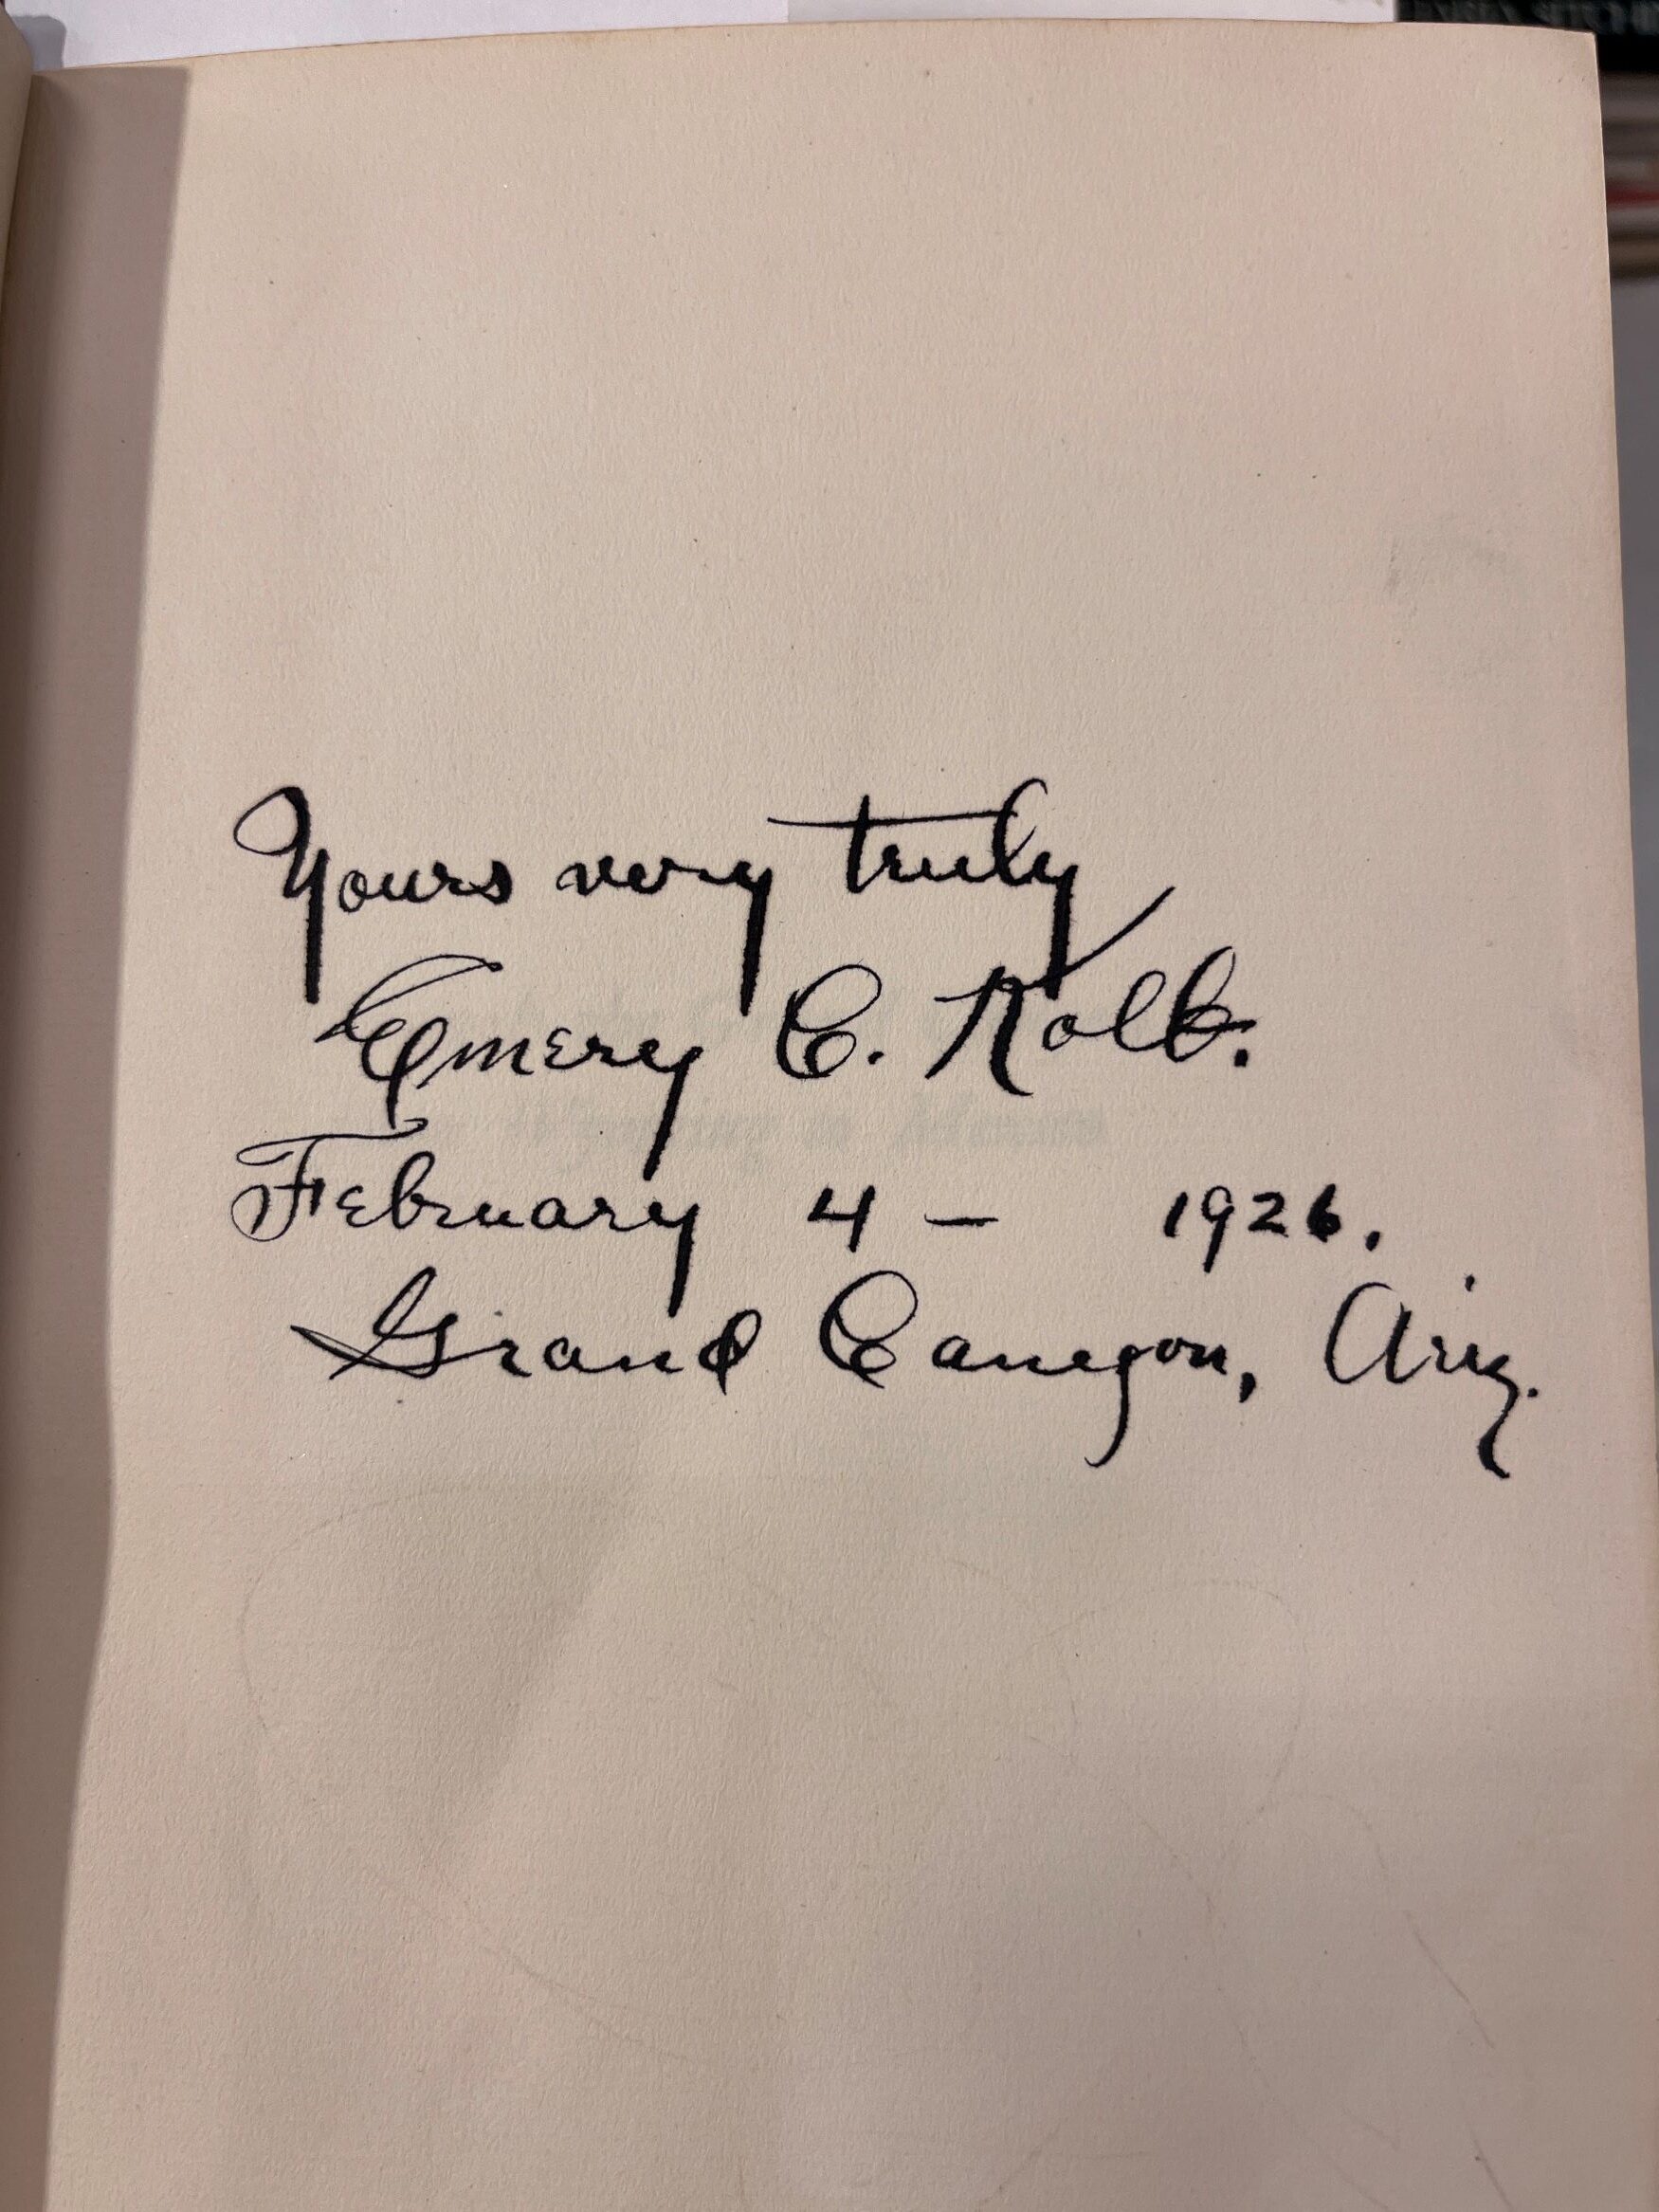 Yours very truly
Emery C. Kolb.
February 4 – 1926.
Grand Canyon, Ariz.